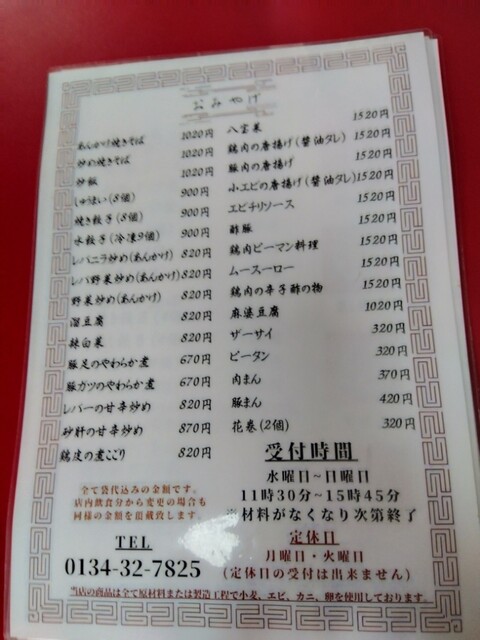 おみやげ
あんかけ焼きそば 1020円
炒め焼きそば 1020円
炒飯 1020円
しゅうまい(8個) 900円
焼き餃子(8個) 900円
水餃子(冷凍9個) 900円
レバニラ炒め(あんかけ) 820円
レバ野菜炒め(あんかけ) 820円
野菜炒め(あんかけ) 820円
湯豆腐 820円
辣白菜 820円
豚足のやわらか煮 670円
豚ガツのやわらか煮 670円
レバーの甘辛炒め 820円
砂肝の甘辛炒め 870円
鶏皮の煮こごり 820円
八宝菜 1520円
鶏肉の唐揚げ(醤油タレ) 1520円
豚肉の唐揚げ 1520円
小エビの唐揚げ(醤油タレ) 1520円
エビチリソース 1520円
酢豚 1520円
鶏肉ピーマン料理 1520円
ムースーロー 1520円
鶏肉の辛子酢の物 1520円
麻婆豆腐 1020円
ザーサイ 320円
ピータン 320円
肉まん 370円
豚まん 420円
花巻(2個) 320円
全て袋代込みの金額です。
店内飲食分から変更の場合も
同様の金額を頂戴致します。
TEL
0134-32-7825
受付時間
水曜日~日曜日
11時30分~15時45分
※材料がなくなり次第終了
定休日
月曜日・火曜日
(定休日の受付は出来ません)
当店の商品は全て原材料または製造工程で小麦、エビ、カニ、卵を使用しております。